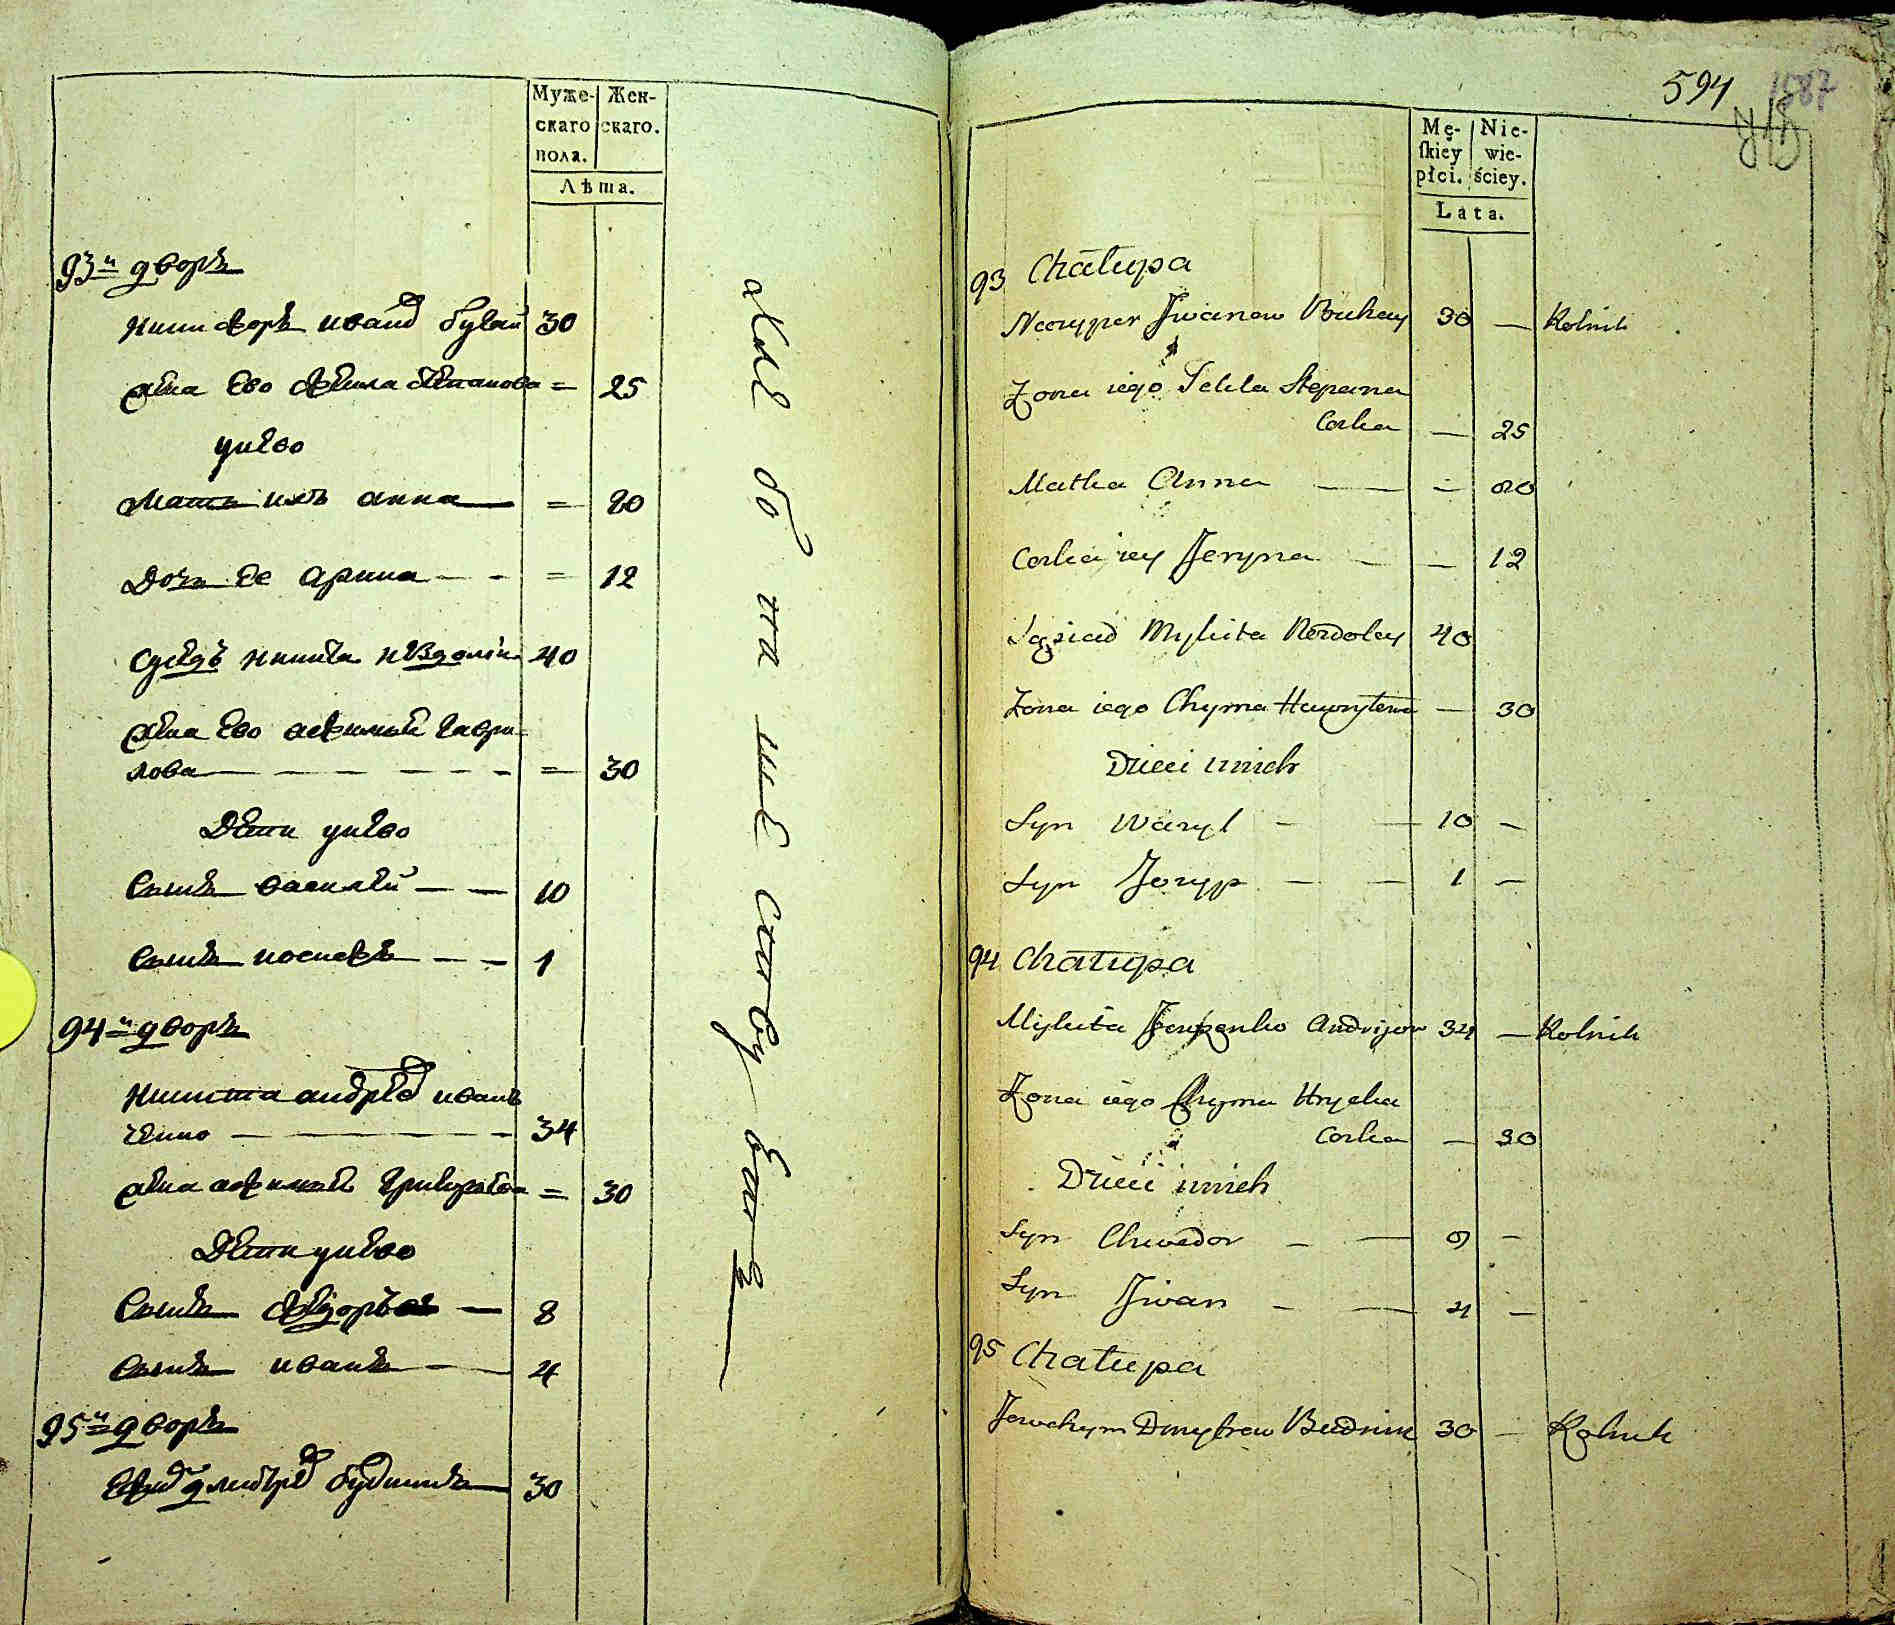 Муже-
скаго
пола.
Жен-
скаго.
Лѣта.
93й дворъ
Никифоръ иванов бугай 30
жена Ево фекла степанова = 25
у нево
Мать ихъ анна = 80
Дочь Ее арина - - = 12
Сусѣдъ никита 40
жена Ево гаври-
лова - - - - - = 30
Дети у нево
Сынъ василей - - 10
Сынъ иосифъ - - 1
94й дворъ
Никита андреев иван
ченко - 34
жена григорьева = 30
Дети у нево
Сынъ федоръ - 8
Сынъ иванъ - 4
95й дворъ
дмитрев будникъ 30
594
1587
Mę-
ſkiey
płci.
Nie-
wie-
ściey.
Lata.
93 Chałupa
Iwanow Buhay 30 — Rolnik
Zona iego Tekla Stepana
Corka — 25
Matka Anna — - 80
Corka iey Jeryna — — 12
Sąsiad Mykita Nezdoley 40
Zona iego Chyma Hawryłowa — 30
Dzieci u nich
Syn Wasyl - — 10 —
Syn Jozyp - — 1 —
94 Chałupa
Mykita Andrijow 34 — Rolnik
Zona iego Chyma Hryćka
Corka — 30
Dzieci u nich
Syn Chwedor - — 8 -
Syn Iwan - — 4 —
95 Chałupa
Jewchym Dmytrow Budnik 30 — Rolnik